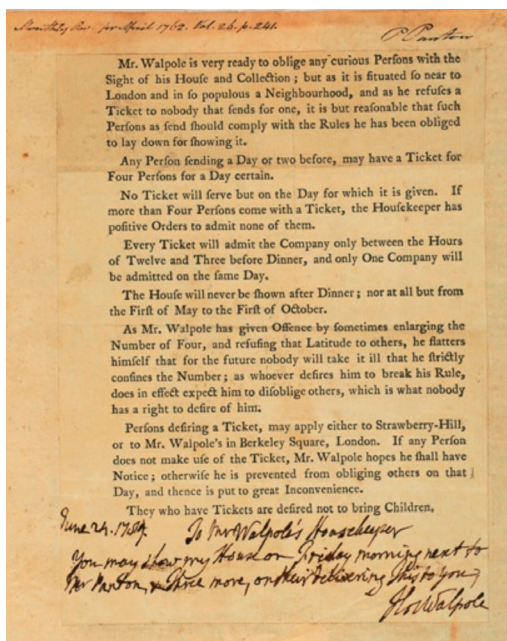 Monthly Rev. for April 1762. Vol. 26. p. 241.
P Panton
Mr. Walpole is very ready to oblige any curious Perſons with the
Sight of his Houſe and Collection; but as it is ſituated ſo near to
London and in ſo populous a Neighbourhood, and as he refuſes a
Ticket to nobody that ſends for one, it is but reaſonable that ſuch
Perſons as ſend ſhould comply with the Rules he has been obliged
to lay down for ſhowing it.
Any Perſon ſending a Day or two before, may have a Ticket for
Four Perſons for a Day certain.
No Ticket will ſerve but on the Day for which it is given. If
more than Four Perſons come with a Ticket, the Houſekeeper has
poſitive Orders to admit none of them.
Every Ticket will admit the Company only between the Hours
of Twelve and Three before Dinner, and only One Company will
be admitted on the ſame Day.
The Houſe will never be ſhown after Dinner; nor at all but from
the Firſt of May to the Firſt of October.
As Mr. Walpole has given Offence by ſometimes enlarging the
Number of Four, and refuſing that Latitude to others, he flatters
himſelf that for the future nobody will take it ill that he ſtrictly
confines the Number; as whoever deſires him to break his Rule,
does in effect expect him to diſoblige others, which is what nobody
has a right to deſire of him.
Perſons deſiring a Ticket, may apply either to Strawberry-Hill,
or to Mr. Walpole's in Berkeley Square, London. If any Perſon
does not make uſe of the Ticket, Mr. Walpole hopes he ſhall have
Notice; otherwiſe he is prevented from obliging others on that
Day, and thence is put to great Inconvenience.
They who have Tickets are deſired not to bring Children.
June 24. To Mr Walpole's Housekeeper
You may show my House on Friday morning next to
Mr Panton, & three more, on their delivering this to you,
Hor Walpole